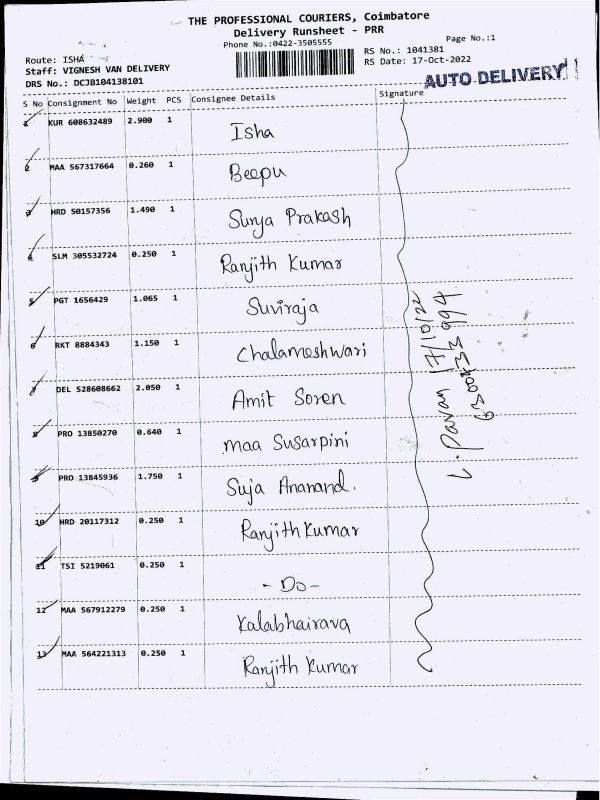 THE PROFESSIONAL COURIERS, Coimbatore
Delivery Runsheet - PRR
Phone No.:0422-3505555
Page No.:1
Route: ISHA
Staff: VIGNESH VAN DELIVERY
DRS No.: DCJB104138101
RS No.: 1041381
RS Date: 17-Oct-2022
AUTO DELIVERY
S No Consignment No Weight PCS Consignee Details Signature
1 KUR 608632489 2.900 1 Isha
2 MAA 567317664 0.260 1 Beepu
3 HRD 50157356 1.490 1 Surya Prakash
4 SLM 305532724 0.250 1 Ranjith Kumar
5 PGT 1656429 1.065 1 Suviraja
6 RKT 8884343 1.150 1 Chalameshwari
7 DEL 528608662 2.050 1 Amit Soren
8 PRO 13850270 0.640 1 maa Susarpini
9 PRO 13845936 1.750 1 Suja Ananand.
10 HRD 20117312 0.250 1 Ranjith Kumar
11 TSI 5219061 0.250 1 - Do -
12 MAA 567912279 0.250 1 Kalabhairava
13 MAA 564221313 0.250 1 Ranjith Kumar
L. Pavan 17/10/22